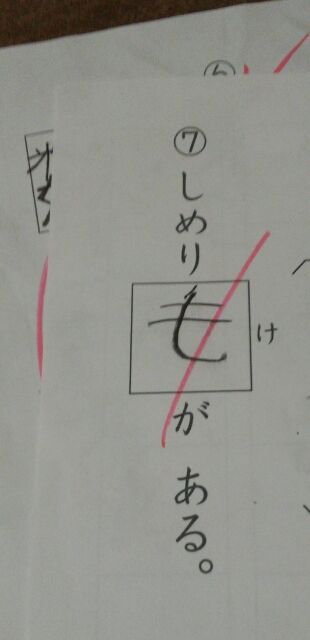 ⑦しめり毛がある。
け